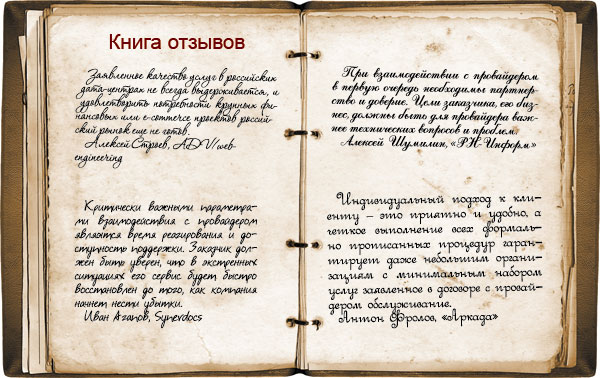 Книга отзывов
Заявленное качество услуг в российских
дата-центрах не всегда выдерживается, и
удовлетворить потребности крупных фи-
нансовых или e-commerce проектов россий-
ский рынок еще не готов.
Алексей Строев, ADV/web-
engineering
Критически важными параметра-
ми взаимодействия с провайдером
являются время реагирования и до-
ступность поддержки. Заказчик дол-
жен быть уверен, что в экстренных
ситуациях его сервис будет быстро
восстановлен до того, как компания
начнет нести убытки.
Иван Агапов, Synerdocs
При взаимодействии с провайдером
в первую очередь необходимы партнер-
ство и доверие. Цели заказчика, его биз-
нес, должны быть для провайдера важ-
нее технических вопросов и проблем.
Алексей Шумилин, «РН-Информ»
Индивидуальный подход к кли-
енту – это приятно и удобно, а
четкое выполнение всех формаль-
но прописанных процедур гаран-
тирует даже небольшим органи-
зациям с минимальным набором
услуг заявленное в договоре с провай-
дером обслуживание.
Антон Фролов, «Аркада»